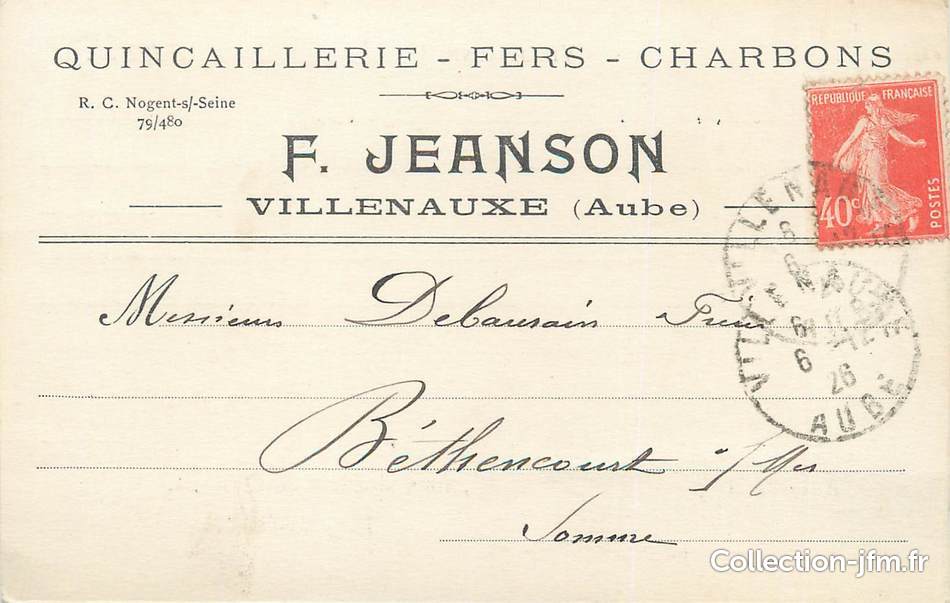 QUINCAILLERIE - FERS - CHARBONS
R. C. Nogent-s/-Seine
79/480
F. JEANSON
VILLENAUXE (Aube)
REPUBLIQUE FRANÇAISE
POSTES
40c
VILLENAUXE
6
VILLENAUXE
6 -12
26
AUBE
Messieurs Debausain Frères
Béthencourt s/Mer
Somme
Collection-jfm.fr